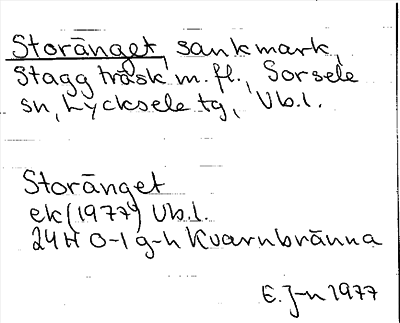 Storänget, sankmark,
Staggträsk m.fl., Sorsele
sn, Lycksele tg, Vb.l.
Storänget
ek (1977) Vb.l.
24H 0-1 g-h Kvarnbränna
E. J-n 1977